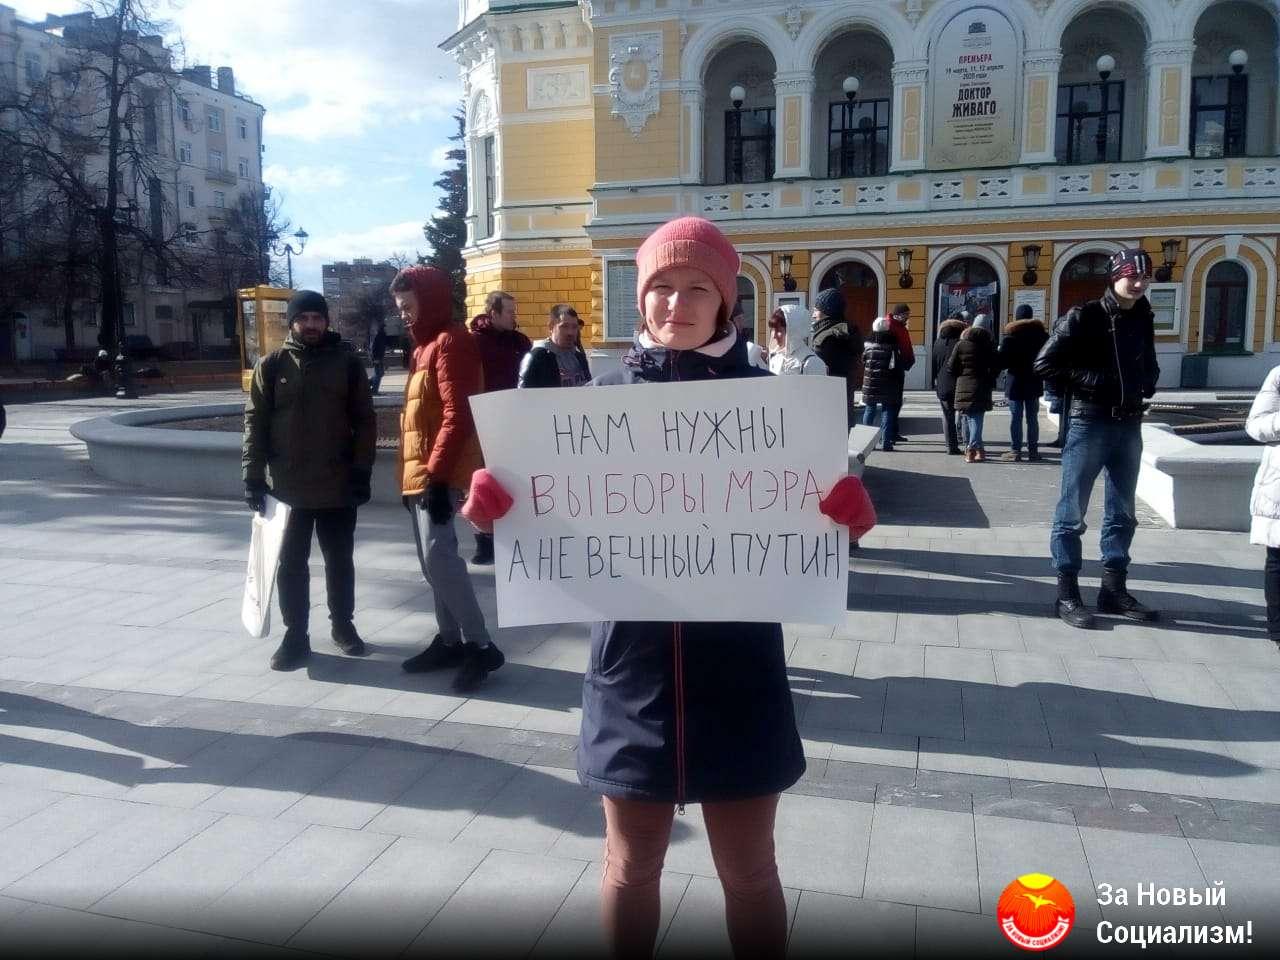 ПРЕМЬЕРА
19 марта, 11, 12 апреля
2020 года
ДОКТОР
ЖИВАГО
НАМ НУЖНЫ
ВЫБОРЫ МЭРА
А НЕ ВЕЧНЫЙ ПУТИН
ЗА НОВЫЙ СОЦИАЛИЗМ!
За Новый
Социализм!